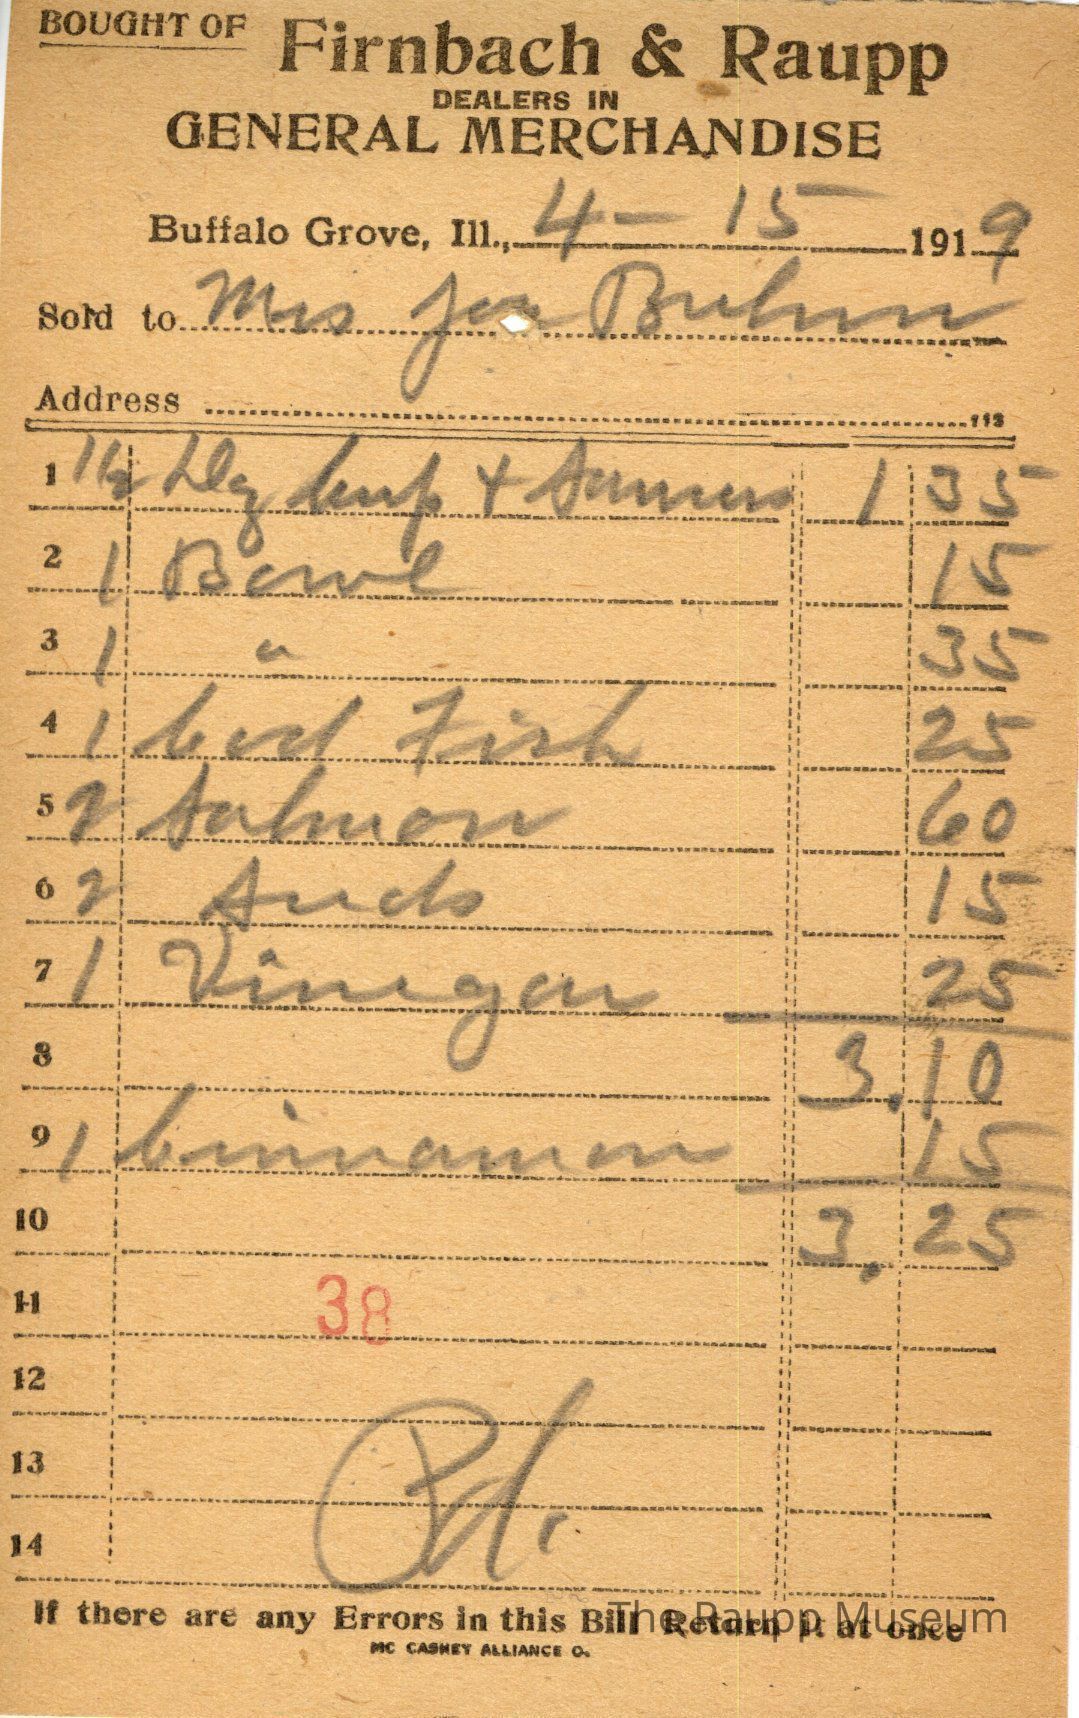 BOUGHT OF Firnbach & Raupp
DEALERS IN
GENERAL MERCHANDISE
Buffalo Grove, Ill., 4 - 15 1919
Sold to Mrs Joe Buhnn
Address
113
1 1½ Dz cups & Saucers 1 35
2 1 Bowl 15
3 1 " 35
4 1 Cod Fish 25
5 2 Salmon 60
6 2 Suds 15
7 1 Vinegar 25
8 3.10
9 1 Cinnamon 15
10 3.25
11 38
12
13 Pd.
14
If there are any Errors in this Bill Return it at once
MC CASKEY ALLIANCE O.
The Raupp Museum